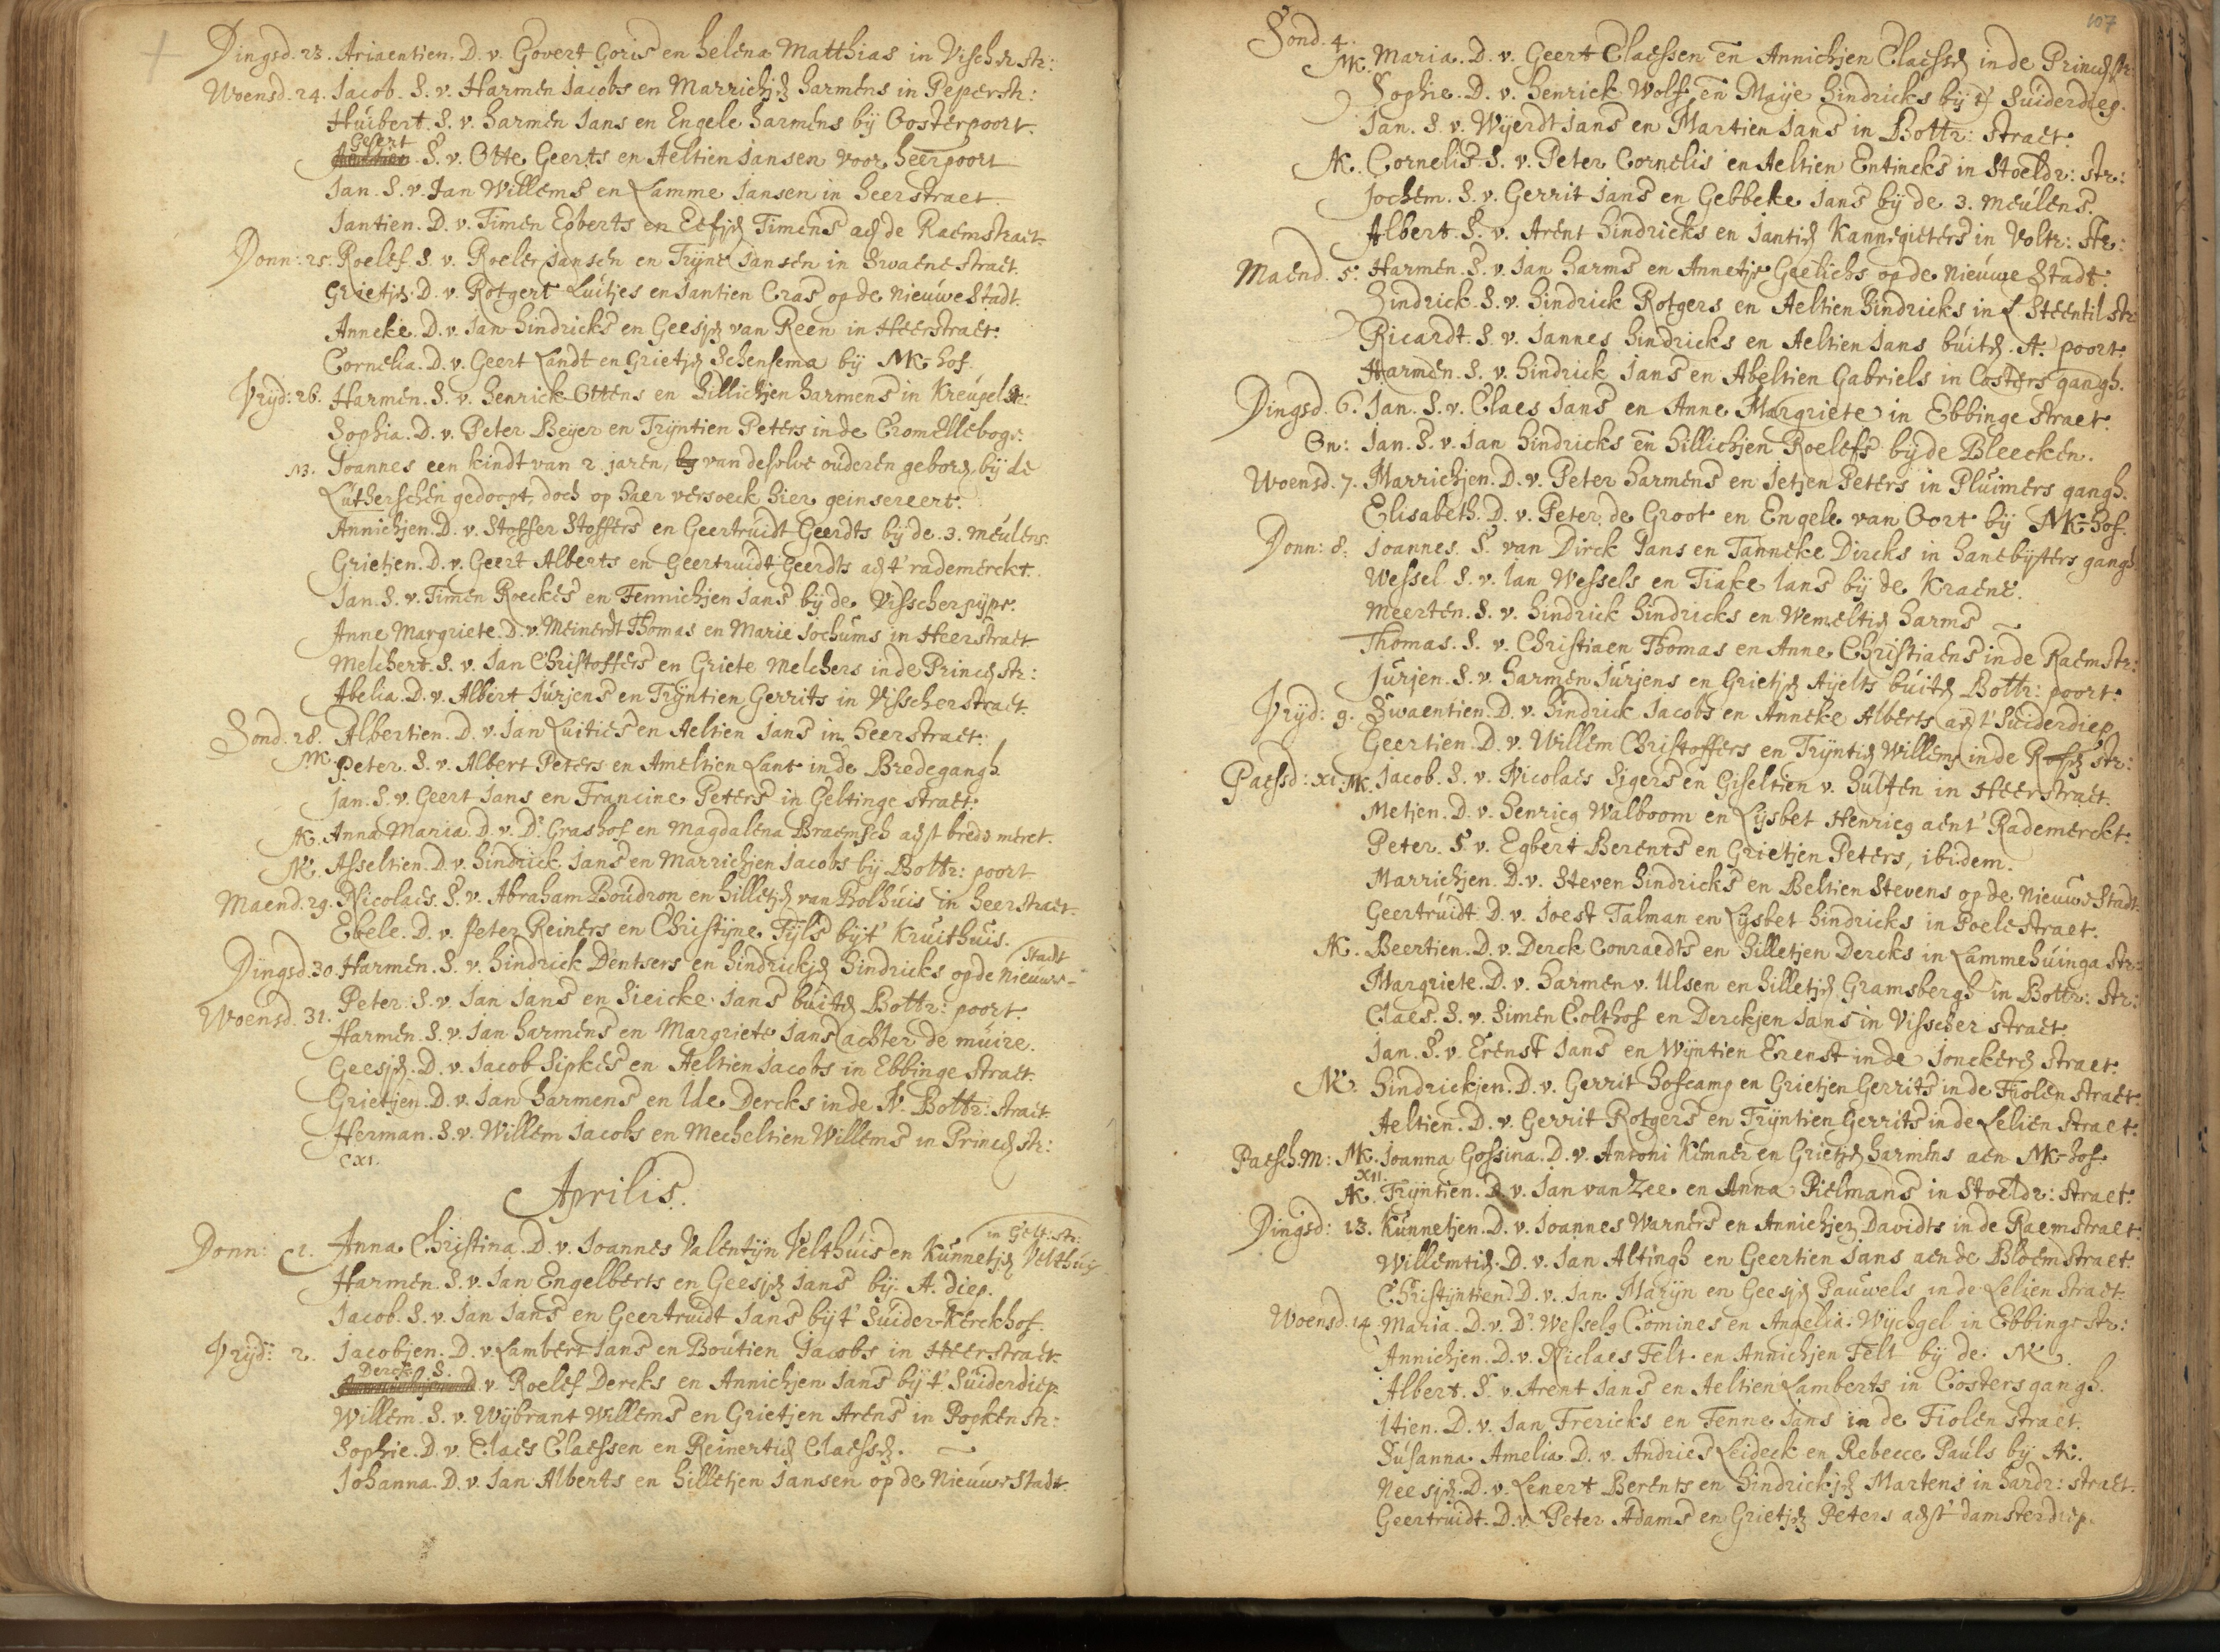 Dingsd. 23. Ariaentien. D. v. Govert Goris en helena Matthias in Vischerstr:
Woensd. 24. Jacob. S. v. Harmen Jacobs en Marrichjen harmens in Peperstr:
Huibert. S. v. harmen Jans en Engele harmens bij Oosterpoort.
Geert
S. v. Otte Geerts en Aeltien Jansen voor heerpoort
Jan. S. v. Jan Willems en Lamme Jansen in heerstraet.
Jantien. D. v. Timen Egberts en Eefjen Timens aen de Raemstraet.
Donn: 25. Roelef. S. v. Roelef Jansen en Trijne Jansen in Swaenestraet.
Grietjen. D. v. Rotgert Luitjes en Jantien Cras op de Nieuwe Stadt.
Anneke. D. v. Jan hindricks en Geesjen van Reen in Heerstraet.
Cornelia. D. v. Geert Landt en Grietjen Schensema bij MK-hof.
Vrijd: 26. Harmen. S. v. henrick Ottens en hillichjen harmens in Kreupelstr:
Sophia. D. v. Peter Beijer en Trijntien Peters in de Cromelleboge.
N3. Joannes een kindt van 2 jaren, van deselve ouderen geboren, bij de
Lutherschen gedoopt, doch op haer versoeck hier geinsereert.
Annichjen. D. v. Stoffer Stoffers en Geertruidt Geerdts bij de 3. meulens.
Grietjen. D. v. Geert Alberts en Geertruidt Geerdts aen t' rademerckt.
Jan. S. v. Timen Roeckes en Fennichjen Jans bij de Visscherpijpe.
Anne Margriete. D. v. Meinerdt Thomas en Marie Jochums in Heerstraet.
Melchert. S. v. Jan Christoffers en Griete Melchers in de Princenstr:
Abelia. D. v. Albert Jurjens en Trijntien Gerrits in Visscherstraet.
Sond. 28. Albertien. D. v. Jan Luities en Aeltien Jans in heerstraet.
MK. Peter. S. v. Albert Peters en Ameltien Lant in de Bredegangh.
Jan. S. v. Geert Jans en Francine Peters in Geltinge straet.
AK. Anna Maria. D. v. Dr Grashof en Magdalena Braemsch aenst brede merct.
NK. Asseltien. D. v. hindrick Jans en Marrichjen Jacobs bij Bottr: poort
Maend. 29. Nicolaes. S. v. Abraham Boudron en hilletjen van Bolhuis in heerstraet.
Ebele. D. v. Peter Reiners en Christijne Tijls bij t' Kruithuis.
Stadt
Dingsd. 30. Harmen. S. v. hindrick Dentsers en hindrickjen hindricks op de Nieuwe-
Peter. S. v. Jan Jans en Sieicke Jans buiten Bottr: poort.
Woensd. 31. Harmen. S. v. Jan harmens en Margriete Jans achter de muire.
Geesjen. D. v. Jacob Sipkes en Aeltien Jacobs in Ebbinge straet.
Grietjen. D. v. Jan harmens en Ide Dercks in de N. Bottr: straet.
Herman. S. v. Willem Jacobs en Mecheltien Willems in Princen str:
cxi.
Aprilis.
in Gelt: str:
Donn: 1. Anna Christina. D. v. Joannes Valentijn Velthuis en Kunnetjen Velthuis
Harmen. S. v. Jan Engelberts en Geesjen Jans bij A. diep.
Jacob. S. v. Jan Jans en Geertruidt Jans bij t' Suider-Kerckhof.
Vrijd: 2. Jacobjen. D. v. Lambert Jans en Boutien Jacobs in Heerstraet.
Derck. S.
v. Roelef Dercks en Annichjen Jans bij t' Suiderdiep.
Willem. S. v. Wijbrant Willems en Grietjen Arens in Popkenstr:
Sophie. D. v. Claes Claessen en Reinertien Claessen.
Johanna. D. v. Jan Alberts en hilletjen Jansen op de Nieuwe Stadt.
107
Sond. 4.
MK. Maria. D. v. Geert Claessen en Annichjen Claessen in de Princenstr:
Sophie. D. v. henrick Wolf en Maije hindricks bij t' Suiderdiep.
Jan. S. v. Wijerdt Jans en Martien Jans in Bottr: straet.
AK. Cornelis. S. v. Peter Cornelis en Aeltien Entincks in Stoeldr: str:
Jochem. S. v. Gerrit Jans en Gebbeke Jans bij de 3. meulens.
Albert. S. v. Arent hindricks en Jantien Kannegieters in Voltr: str:
Maend. 5. Harmen. S. v. Jan harms en Annetje Gaelichs op de nieuwe Stadt.
hindrick. S. v. hindrick Rotgers en Aeltien hindricks in L. Steentilstr
Ricardt. S. v. Jannes hindricks en Aeltien Jans buiten. A. poort.
Harmen. S. v. hindrick Jans en Abeltien Gabriels in Costers gangh.
Dingsd. 6. Jan. S. v. Claes Jans en Anne Margriete in Ebbinge straet.
On: Jan. S. v. Jan hindricks en hillichjen Roelefs bij de Bleecken.
Woensd. 7. Marrichjen. D. v. Peter harmens en Jetjen Peters in Pluimers gangh.
Elisabeth. D. v. Peter de Groot en Engele van Oort bij MK-hof.
Donn: 8. Joannes. S. van Dirck Jans en Tanneke Dircks in hanebijters gangh
Wessel. S. v. Jan Wessels en Tiake Jans bij de Kraene.
Meerten. S. v. hindrick hindricks en Wemeltien harms
Thomas. S. v. Christiaen Thomas en Anne Christiaens in de Raemstr:
Jurjen. S. v. harmen Jurjens en Grietjen Aijelts buiten Bottr: poort.
Vrijd: 9. Swaentien. D. v. hindrick Jacobs en Anneke Alberts aen t' Suiderdiep
Geertien. D. v. Willem Christoffers en Trijntien Willems in de Rosen str:
Paessd: xi. MK. Jacob. S. v. Nicolaes Sigers en Giseltien v. hulten in Heerstraet.
Metjen. D. v. henricq Walboom en Lijsbet Henricq aent' Rademerckt.
Peter. S. v. Egbert Berents en Grietjen Peters, ibidem.
Marrichjen. D. v. Steven hindricks en Beltien Stevens op de Nieuwe Stadt.
Geertruidt. D. v. Joest Talman en Lijsbet hindricks in Poelestraet.
AK. Beertien. D. v. Derck Conraedts en hilletjen Dercks in Lammehuinga str:
Margriete. D. v. harmen v. Ulsen en hilletjen Gramsbergh in Bottr: str:
Claes. S. v. Simen Colthof en Derckjen Jans in Visscher straet
Jan. S. v. Erenst Jans en Wijntien Erenst in de Jonckeren straet.
NK. hindrickjen. D. v. Gerrit hofcamp en Grietjen Gerrits in de Fiolen straet.
Aeltien. D. v. Gerrit Rotgers en Trijntien Gerrits in de Lelien straet.
Paesch.m: MK. Joanna Gossina. D. v. Antoni Kemner en Grietjen harmens aen MK-hof.
XII.
AK. Trijntien. D. v. Jan van Zee en Anna Pielmans in Stoeldr: straet.
Dingsd: 13. Kunnetjen. D. v. Joannes Warners en Annichjen Davidts in de Raemstraet.
Willemtien. D. v. Jan Altingh en Geertien Jans aen de Bloemstraet.
Christijntien D. v. Jan Marijn en Geesjen Pauwels in de Lelien straet.
Woensd. 14. Maria. D. v. Dr Wesselq Comines en Angelia Wijchgel in Ebbinge str:
Annichjen. D. v. Niclaes Felt en Annichjen Felt bij de NK.
Albert. S. v. Arent Jans en Aeltien Lamberts in Costers gangh.
Itien. D. v. Jan Frericks en Fenne Jans in de Fiolen straet.
Susanna Amelia. D. v. Andries Leideck en Rebecce Pauls bij AK.
Neesjen. D. v. Lenert Berents en hindrickjen Martens in hardr: straet.
Geertruidt. D. v. Peter Adams en Grietjen Peters aenst' damsterdiep.